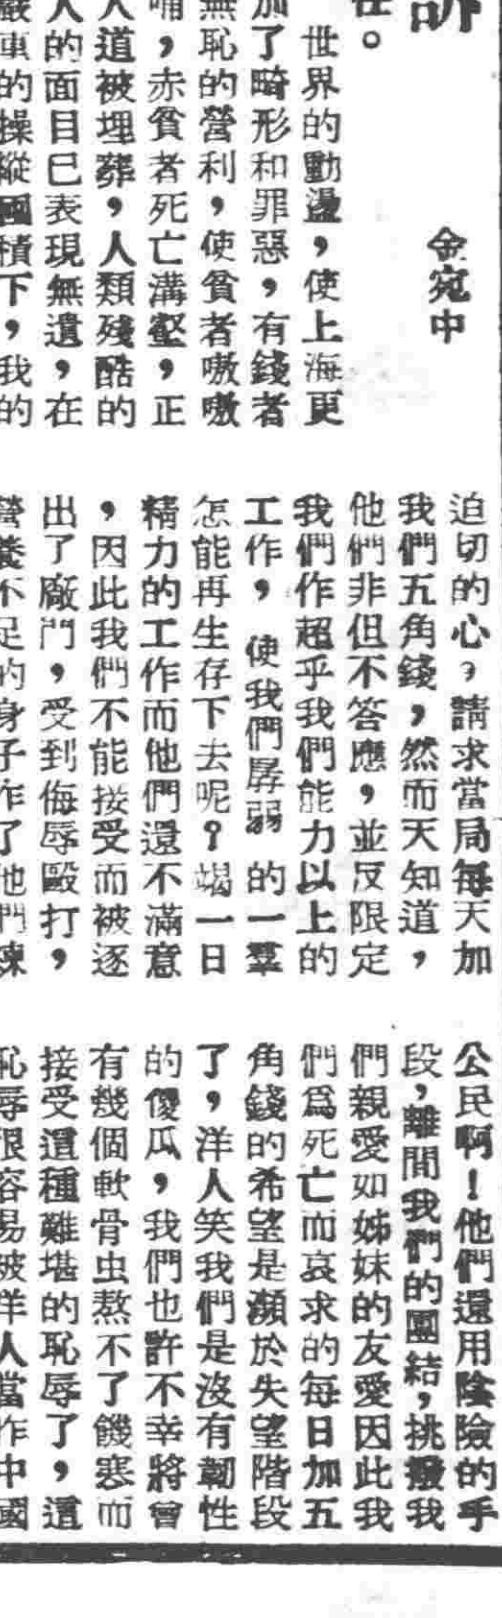 訴
任。
金宛中
世界的動盪，使上海更
加了畸形和罪惡，有錢者
無恥的營利，使貧者嗷嗷
哺，赤貧者死亡溝壑，正
人道被埋葬，人類殘酷的
人的面目已表現無遺，在
嚴重的操縱囤積下，我的
迫切的心，請求當局每天加
我們五角錢，然而天知道，
他們非但不答應，並反限定
我們作超乎我們能力以上的
工作，使我們孱弱的一羣
怎能再生存下去呢？竭一日
精力的工作而他們還不滿意
，因此我們不能接受而被逐
出了廠門，受到侮辱毆打，
營養不足的身子作了他們練
公民啊！他們還用陰險的手
段，離間我們的團結，挑撥我
們親愛如姊妹的友愛因此我
們爲死亡而哀求的每日加五
角錢的希望是瀕於失望階段
了，洋人笑我們是沒有韌性
的傻瓜，我們也許不幸將會
有幾個軟骨虫熬不了饑寒而
接受這種難堪的恥辱了，這
恥辱很容易被洋人當作中國